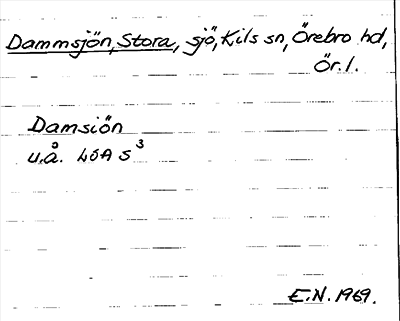 Dammsjön, Stora, sjö, Kils sn, Örebro hd,
Ör. l.
Damsiön
u.å. LSA S³
E.N. 1969.